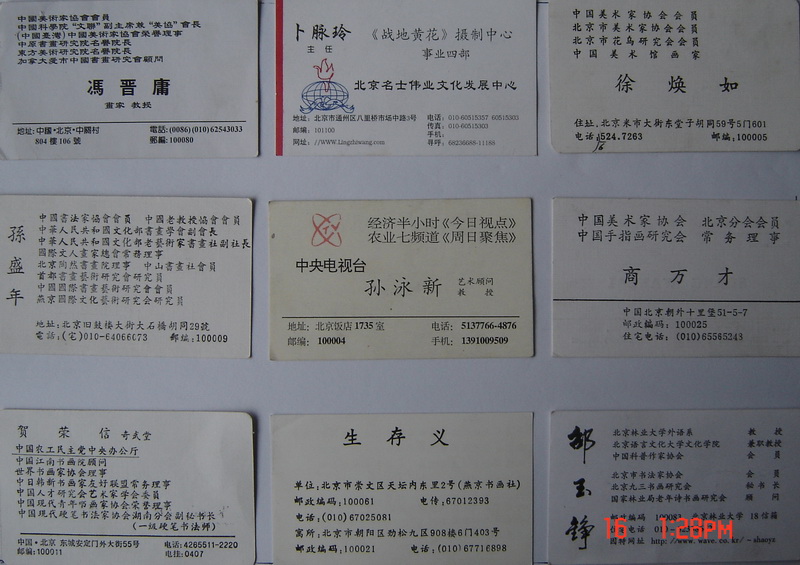 中國美術家協會會員
中國科學院“文聯”副主席兼“美協”會長
(中國臺灣)中國美術家協會榮譽理事
中原書畫研究院名譽院長
東方美術研究院名譽院長
加拿大愛市中國書畫研究會顧問
馮晋庸
畫家 教授
地址:中國·北京·中關村
804樓106號
電話:(0086)(010)62543033
郵編:100080
卜脉玲
主任
《战地黄花》摄制中心
事业四部
北京名士伟业文化发展中心
地址:北京市通州区八里桥市场中路3号
邮编:101100
网址://WWW.Lingzhiwang.com
电话:010-60515357 60515303
传真:010-60515303
手机:
寻呼:68236688-11186
中国美术家协会会员
北京市美术家协会会员
北京市花鸟研究会会员
中国美术馆画家
徐焕如
住址:北京米市大街东堂子胡同59号5门601
电话:524.7263
邮编:100005
孫盛年
中國書法家協會會員 中國老教授協會會員
中華人民共和國文化部書畫學會副會長
中華人民共和國文化部老藝術家書畫社副社長
國際文人畫家總會常務理事
北京陶然書畫院理事 中山書畫社會員
首都書畫藝術研究會研究員
中國國際書畫藝術研究會會員
燕京國際文化藝術研究會研究員
地址:北京旧鼓楼大街大石橋胡同29號
電話:(宅)010-64066073 郵編:100009
经济半小时《今日视点》
农业七频道《周日聚焦》
中央电视台
孙泳新
艺术顾问
教授
地址:北京饭店1735室
邮编:100004
电话:5137766-4876
手机:1391009509
中国美术家协会 北京分会会员
中国手指画研究会 常务理事
商万才
中国北京朝外十里堡51-5-7
邮政编码:100025
住宅电话:(010)65585243
贺荣信 奇武堂
中国农工民主党中央办公厅
中国江南书画院顾问
世界书画家协会理事
中日韩新书画家友好联盟常务理事
中国人才研究会艺术家学会委员
中国现代青年书画家协会荣誉理事
中国现代硬笔书法家协会湖南分会副秘书长
(一级硬笔书法师)
中国·北京 东城安定门外大街55号
邮编:100011
电话:4265511-2220
电挂:0407
生存义
单位:北京市崇文区天坛内东里2号(燕京书画社)
邮政编码:100061 电传:67012393
电话:(010)67025081
寓所:北京市朝阳区劲松九区908楼6门403号
邮政编码:100021 电话:(010)67716898
邹玉铮
北京林业大学外语系 教授
北京语言文化大学文化学院 兼职教授
中国科普作家协会 会员
北京市书法家协会 会员
北京九三书画研究会 秘书长
国家林业局老年诗书画研究会 顾问
邮政编码 100083 北京林业大学 18信箱
因特网址 http://www.wave.co.kr/~shaoyz
16 1:28PM